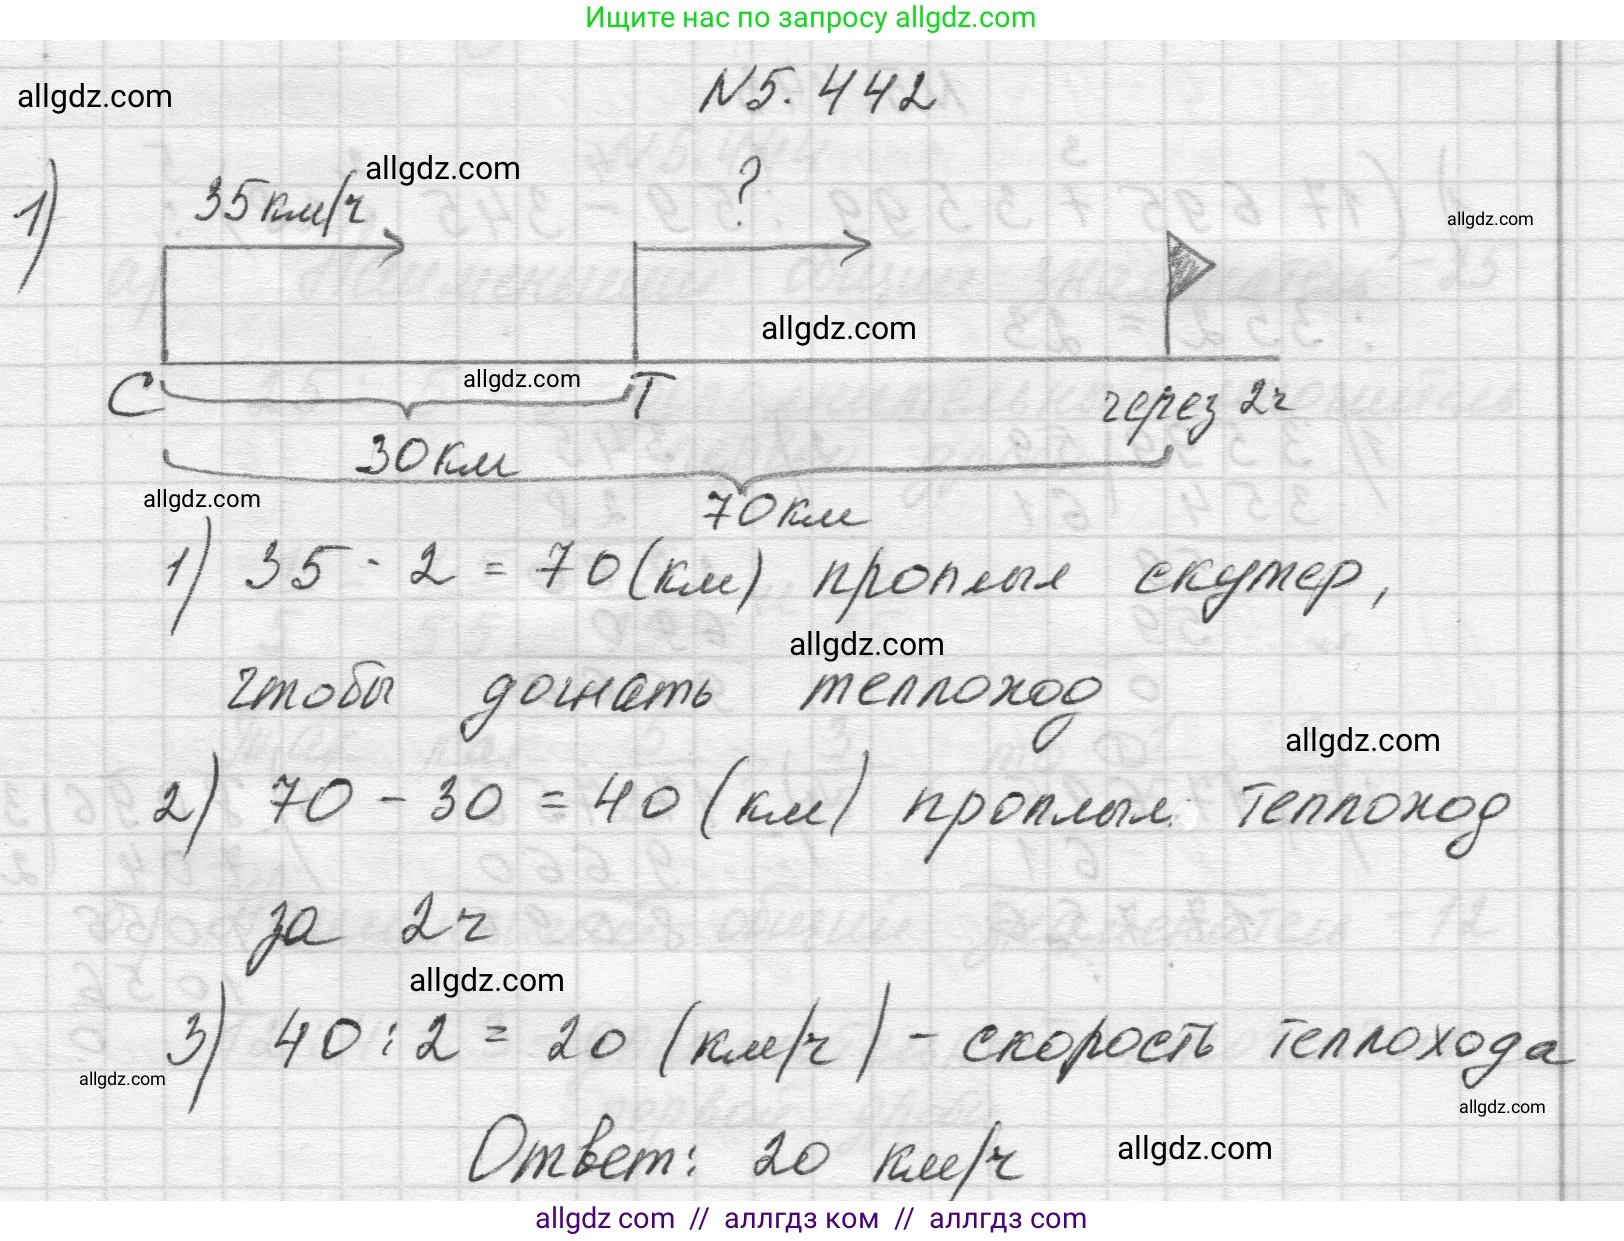 Ищите нас по запросу allgdz.com
allgdz.com
N5.442
allgdz.com
1)
35км/ч
?
allgdz.com
allgdz.com
allgdz.com
С
Т
через 2ч
30км
allgdz.com
70км
1) 35 · 2 = 70 (км) проплыл скутер,
allgdz.com
чтобы догнать теплоход
allgdz.com
2) 70 - 30 = 40 (км) проплыл теплоход
за 2ч
allgdz.com
3) 40 : 2 = 20 (км/ч) - скорость теплохода
allgdz.com
allgdz.com
Ответ: 20 км/ч
allgdz.com
allgdz com // аллгдз ком // аллгдз com